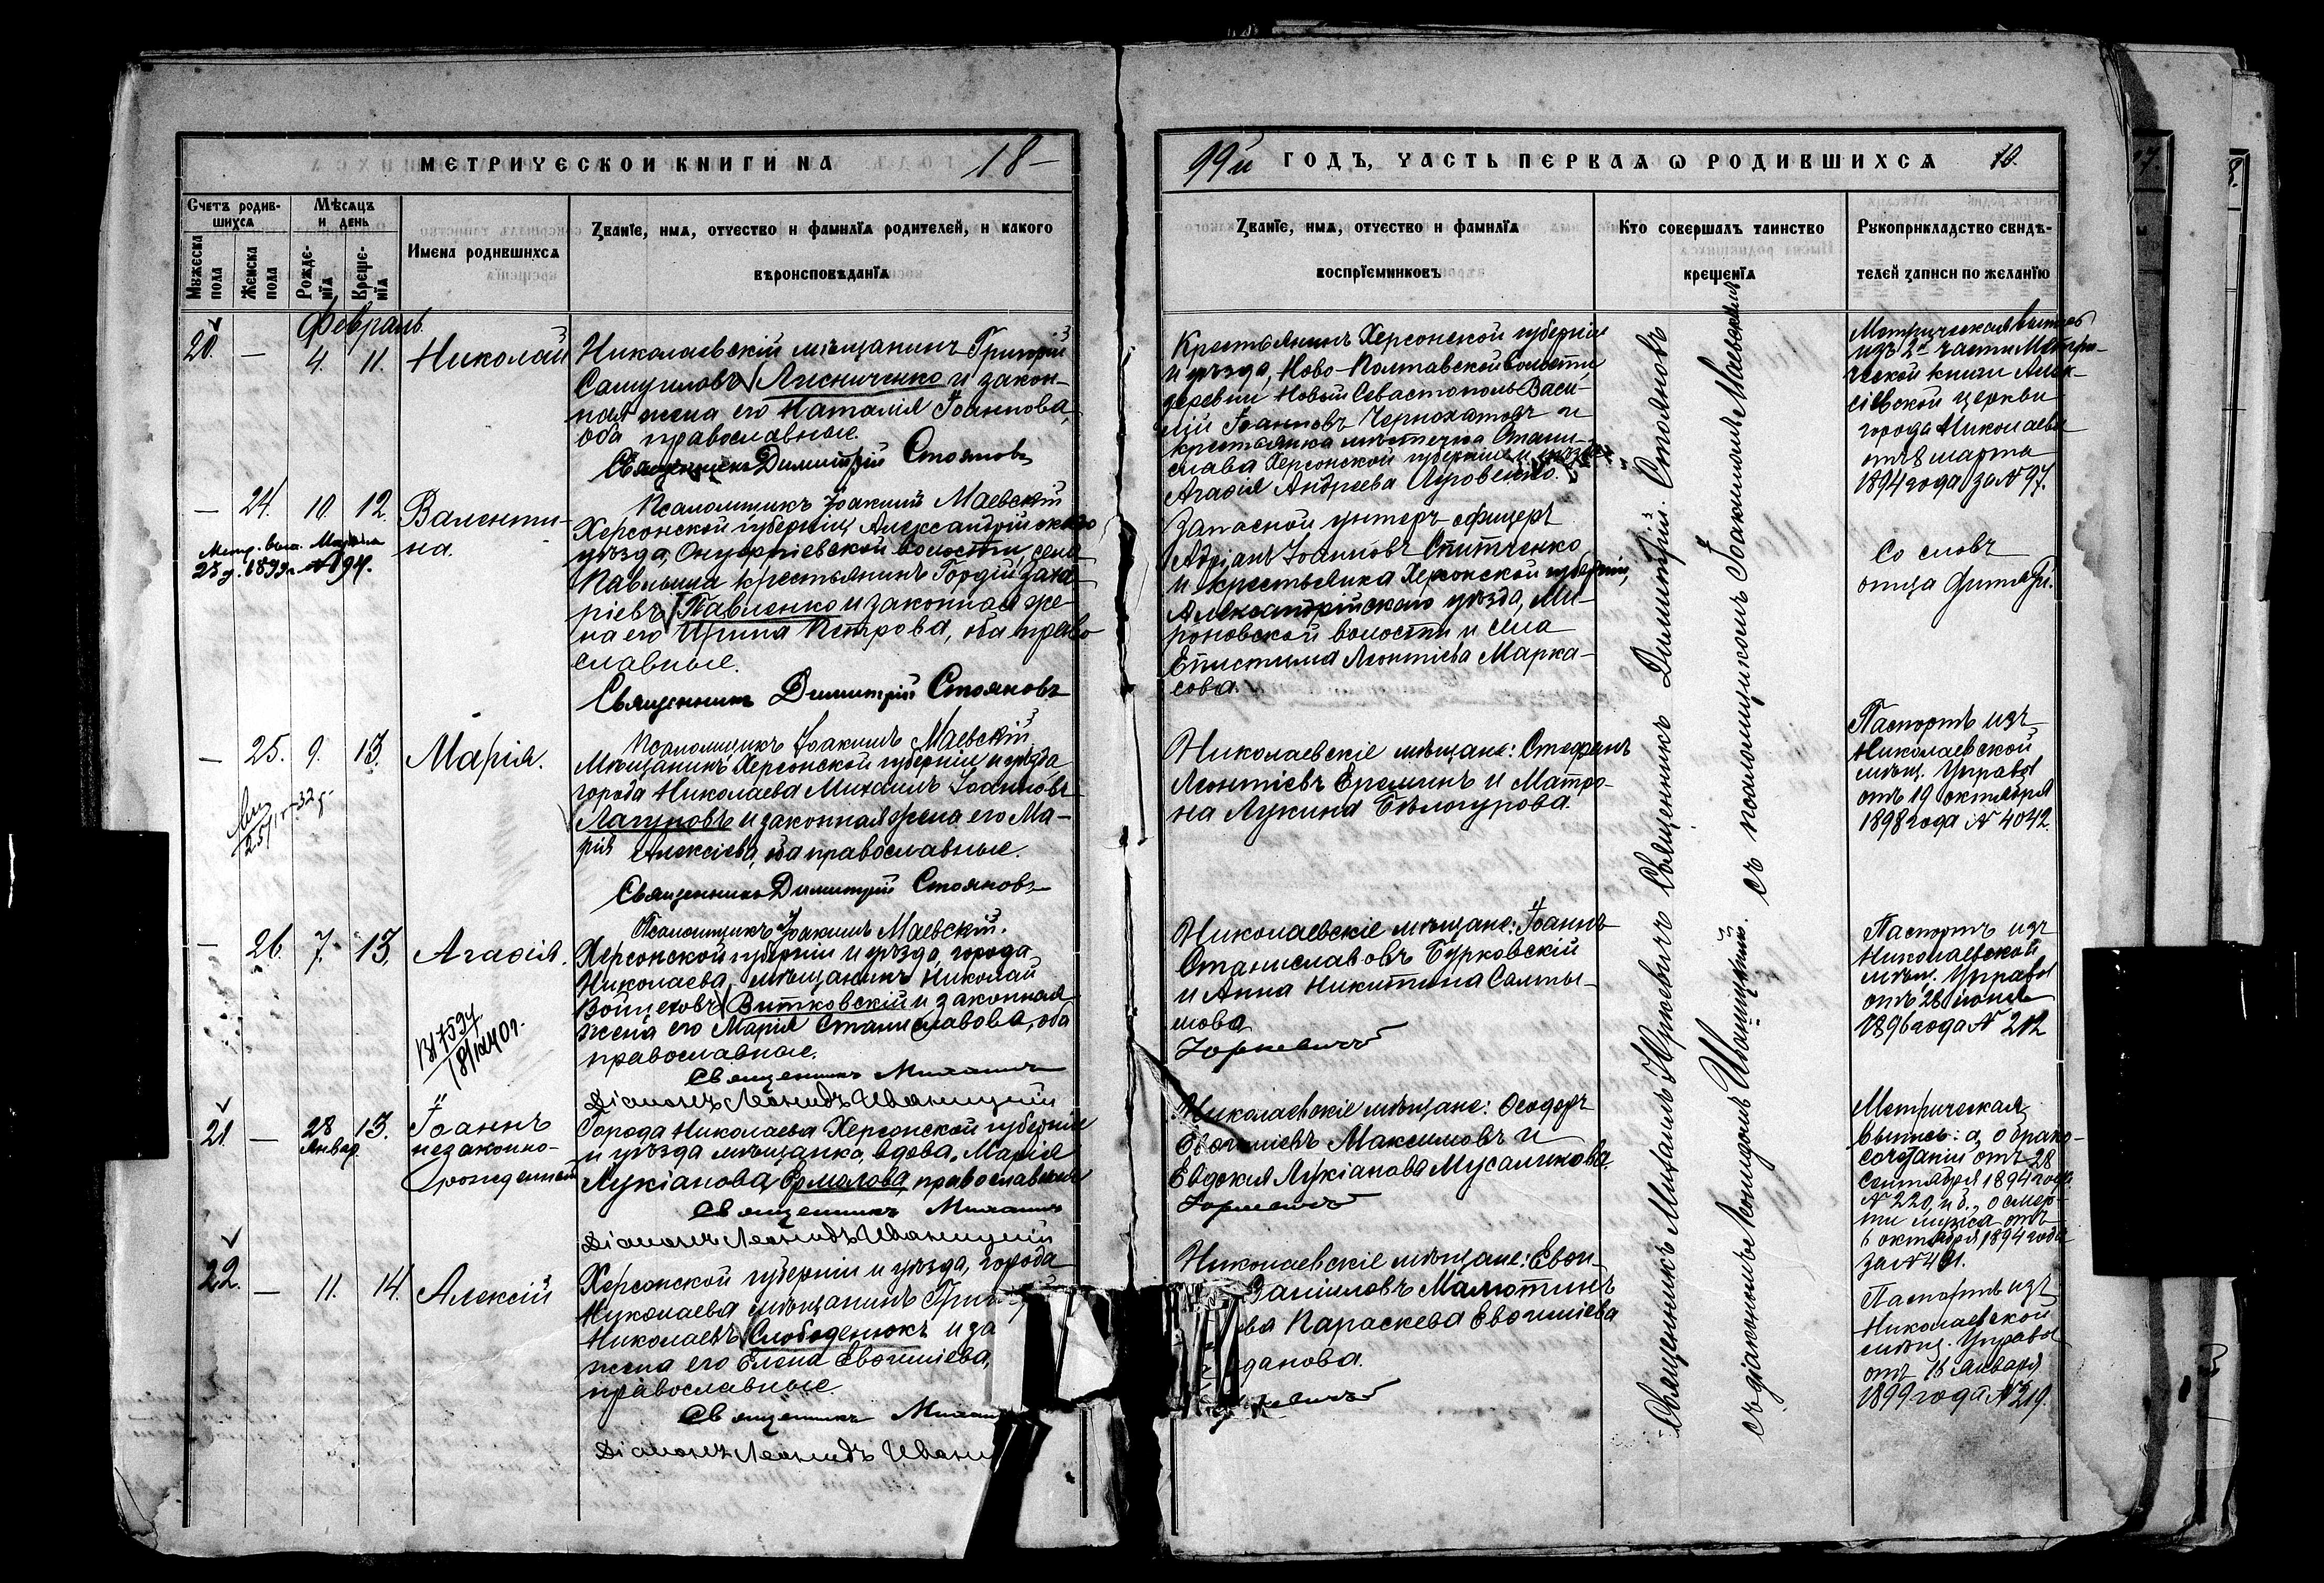 МЕТРИЧЕСКОЙ КНИГИ НА 18-
Счетъ родив-
шихся
Мѣсяцъ
и день
Мужеска
пола
Женска
пола
Рожде-
нія
Креще-
нія
Имена родившихся
Званіе, имя, отчество и фамилія родителей, и какого
вѣроисповѣданія
Февраль
20. — 4. 11. Николай
Николаевскій мѣщанинъ Григорій
Самуиловъ Лисниченко и закон-
ная жена его Наталія Іоаннова,
оба православные.
Священникъ Димитрій Стояновъ
Псаломщикъ Іоакимъ Маевскій
— 24. 10 12. Валенти-
на.
Метр. вып. Марта
25 д. 1899 г. № 194.
Херсонской губерніи Александрійскаго
уѣзда, Онуфріевской волости, села
Павлыша крестьянинъ Гордій Заха-
ріевъ Павленко и законная же-
на его Ирина Петрова, оба право-
славные.
Священникъ Димитрій Стояновъ
Псаломщикъ Іоакимъ Маевскій
— 25. 9. 13. Марія.
Мѣщанинъ Херсонской губерніи и уѣзда
города Николаева Михаилъ Іоанновъ
Лагуновъ и законная жена его Ма-
рія Алексіева, оба православные.
Священникъ Димитрій Стояновъ
Псаломщикъ Іоакимъ Маевскій.
— 26. 7. 13. Агафія.
Херсонской губерніи и уѣзда, города
Николаева, мѣщанинъ Николай
Войцеховъ Витковскій и законная
жена его Марія Станиславова, оба
православные.
Священникъ Михаилъ
Діаконъ Леонидъ Иваницкій
21. — 28 13. Іоаннъ
Январ.
незаконно-
рожденный
Города Николаева Херсонской губерніи
и уѣзда мѣщанка, вдова, Марія
Лукіанова Ермолова, православная
Священникъ Михаилъ
Діаконъ Леонидъ Иваницкій
22. — 11. 14. Алексій
Херсонской губерніи и уѣзда, города
Николаева мѣщанинъ
Николаевъ Слободенюкъ и за
жена его Елена Евфиміева,
православные.
Священникъ
Діаконъ Леонидъ Ивани
99й ГОДЪ, ЧАСТЬ ПЕРВАЯ О РОДИВШИХСЯ 10.
Званіе, имя, отчество и фамилія
воспріемниковъ
Кто совершалъ таинство
крещенія
Рукоприкладство свидѣ-
телей записи по желанію
Крестьянинъ Херсонской губерніи
и уѣзда, Ново-Полтавской волости
деревни Новый Севастополь Васи-
лій Іоанновъ Чернохатовъ и
крестьянка мѣстечка Стани-
слава Херсонской губерніи и уѣзда
Агафія Андреева
Метрическая выпись
изъ 2й части Метри-
ческой книги Алек-
сіевской церкви
города Николаева
отъ 8 марта
1894 года за № 97.
Запасной унтеръ-офицеръ
Адріанъ Іоанновъ Спитченко
и крестьянка Херсонской губерніи,
Александрійскаго уѣзда, Ми-
роновской волости и села
Епистимія Леонтіева Марка-
сова.
Со словъ
отца дитяти.
Николаевскіе мѣщане: Стефанъ
Леонтіевъ Ереминъ и Матро-
на Лукина Бѣлогурова.
Паспортъ изъ
Николаевской
мѣщ. Управы
отъ 19 октября
1898 года № 4042.
Николаевскіе мѣщане: Іоаннъ
Станиславовъ Бурковскій
и Анна Никитина Салты-
кова
Юркевичъ
Паспортъ изъ
Николаевской
мѣщ. Управы
отъ 28 іюня
1896 года № 212
Николаевскіе мѣщане: Ѳеодоръ
Евфиміевъ Максимовъ и
Евдокія Лукіанова Мусалинова.
Юркевичъ
Метрическая
выпись: а, о брако-
сочетаніи отъ 28
сентября 1894 года
№ 220, и б., о смер-
ти мужа отъ
6 октября 1894 года
за № 401.
Николаевскіе мѣщане: Евфи-
Даниловъ Малютинъ
ва Параскева Евфиміева
данова.
кевичъ
Паспортъ изъ
Николаевской
мѣщ. Управы
отъ 16 Января
1899 года № 219.
Священникъ Михаилъ Юркевичъ Священникъ Димитрій Стояновъ
съ діакономъ Леонидомъ Иваницкимъ. съ псаломщикомъ Іоакимомъ Маевскимъ